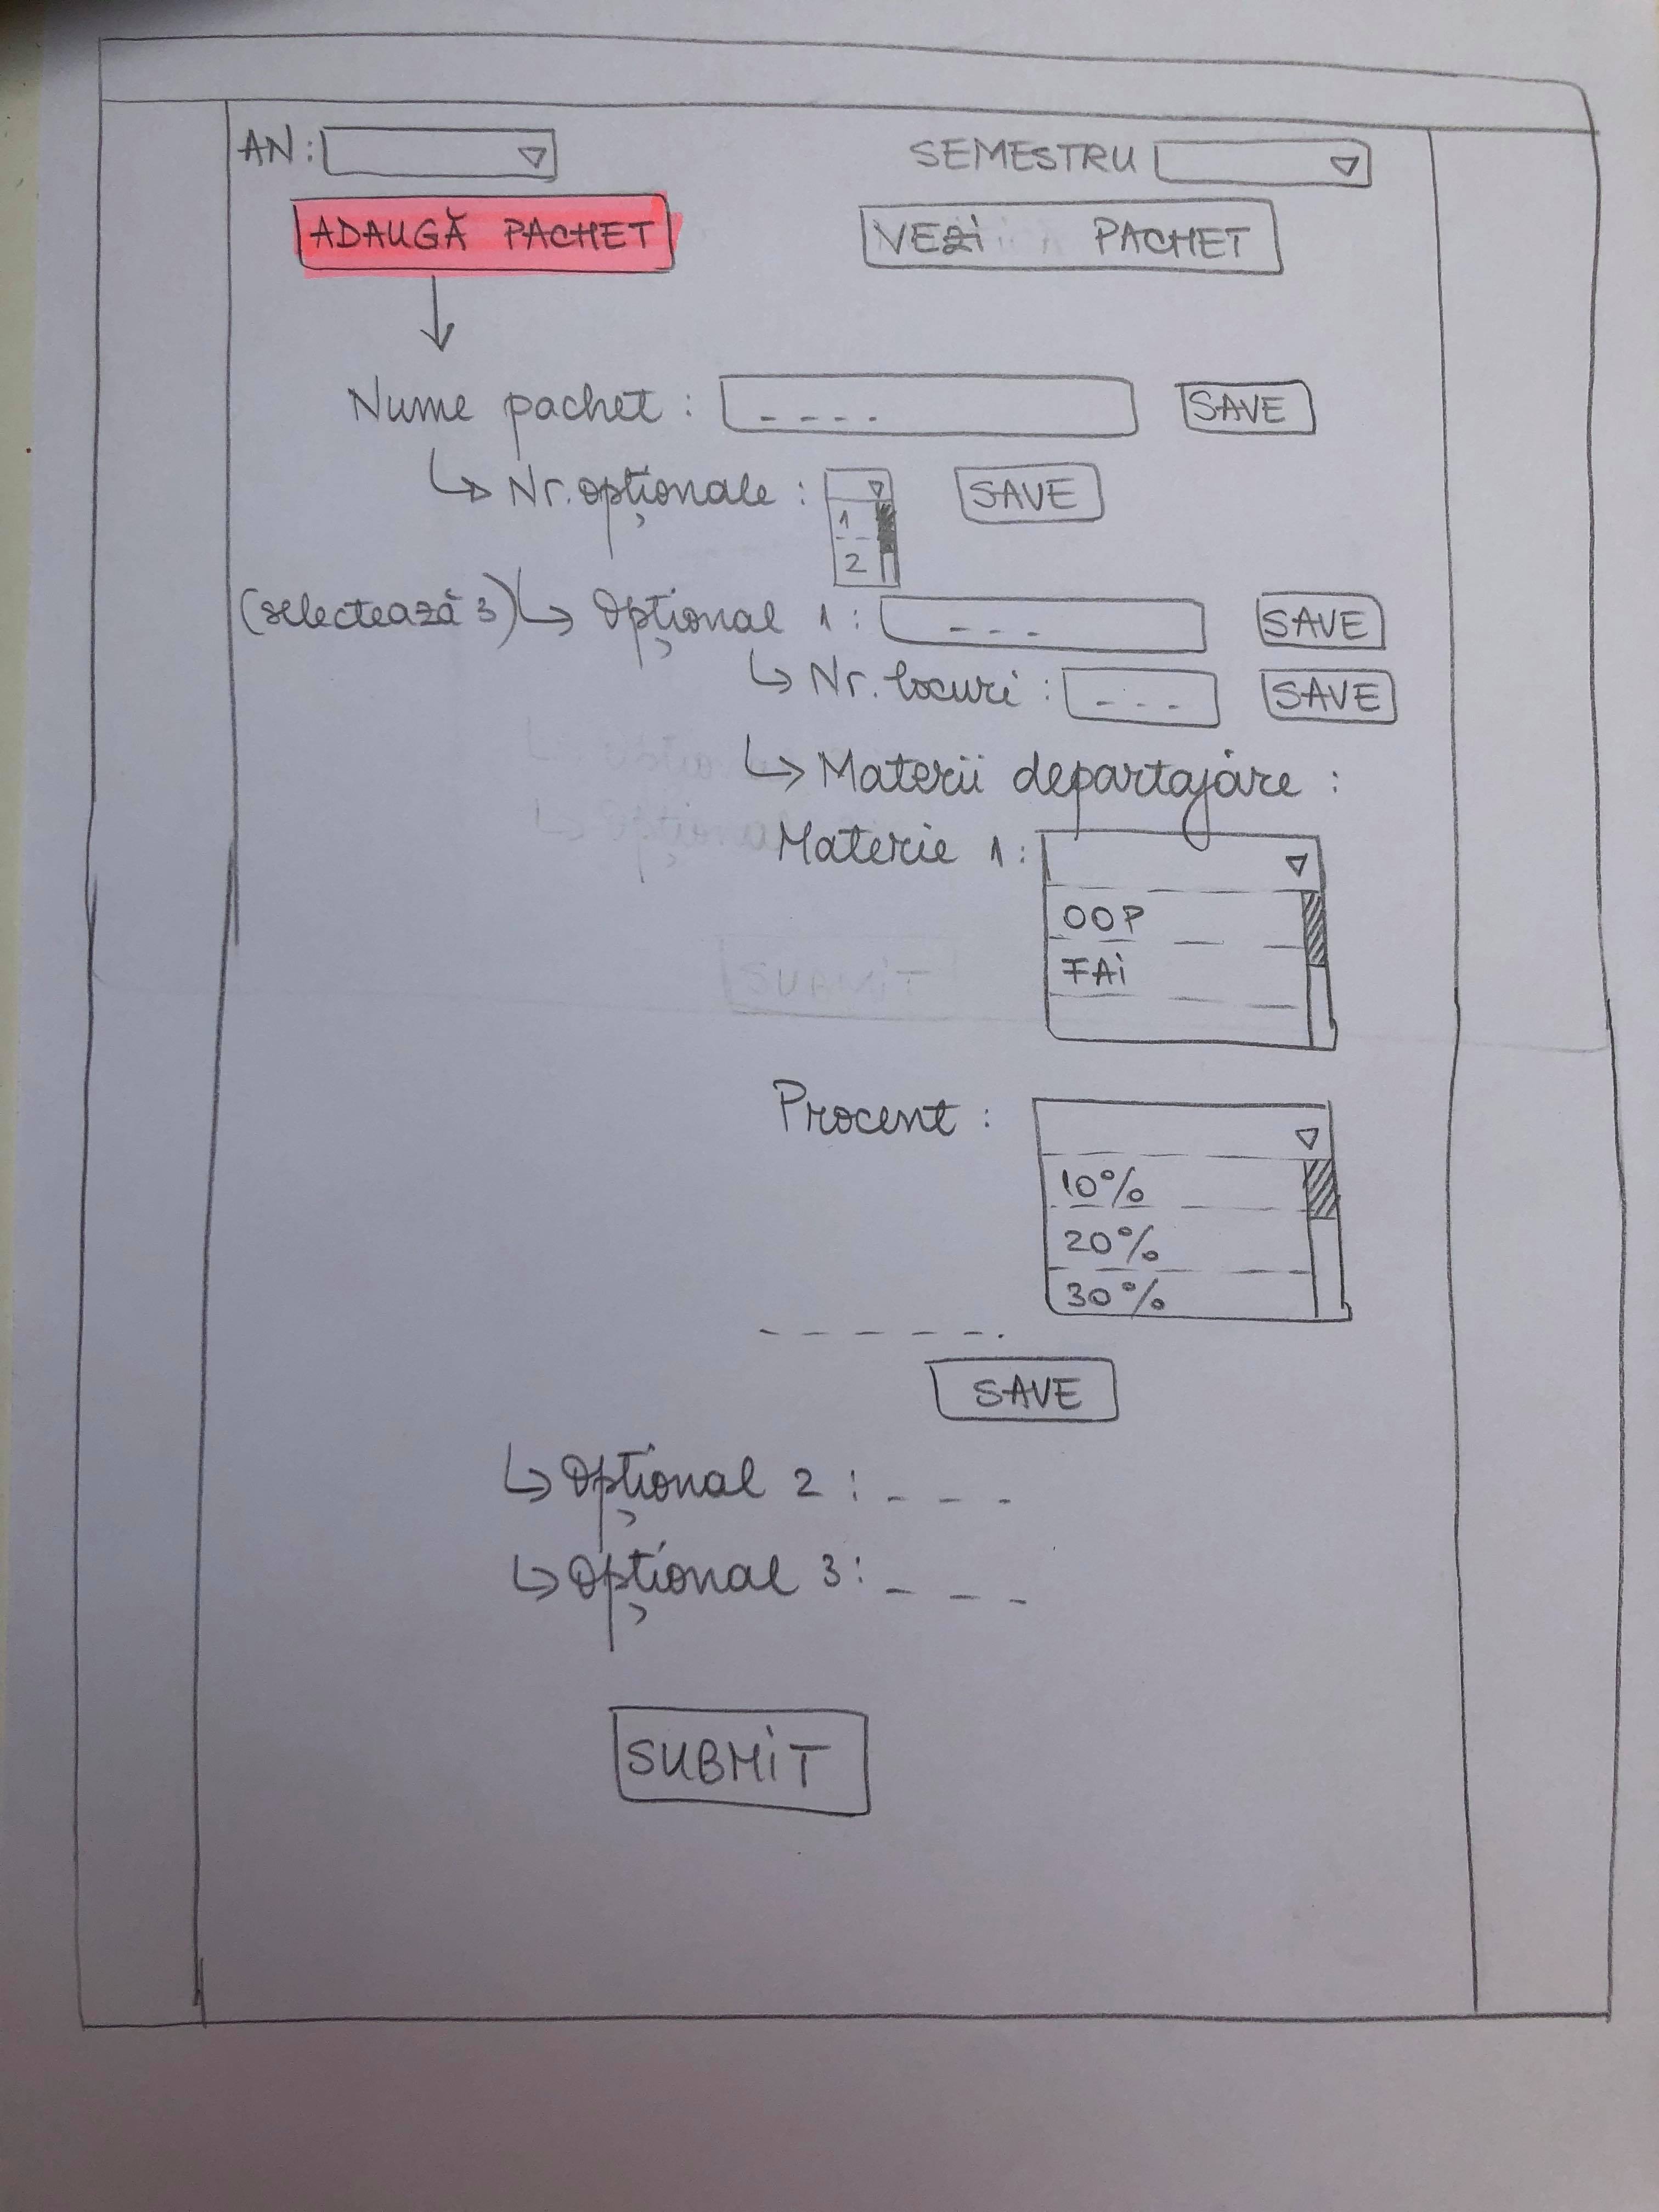 AN:
SEMESTRU
ADAUGĂ PACHET
VEZI PACHET
Nume pachet :
SAVE
Nr. opționale :
SAVE
1
2
(selectează 3)
Opțional 1 :
SAVE
Nr. locuri :
SAVE
Materii departajare :
Materie 1 :
OOP
FAI
Procent :
10%
20%
30%
SAVE
Opțional 2 : - - -
Opțional 3 : - - -
SUBMIT